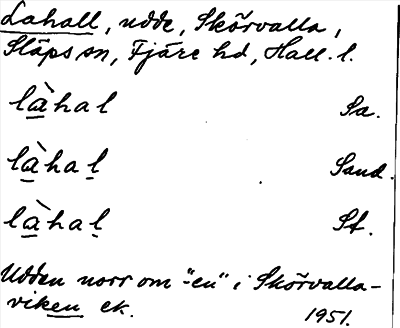 Lahall, udde, Skörvalla,
Släps sn, Fjäre hd, Hall. l.
là̱hal Sa.
là̱haḻ Sand.
là̱haḷ St.
Udden norr om "-en" i Skörvalla-
viken ek. 1951.